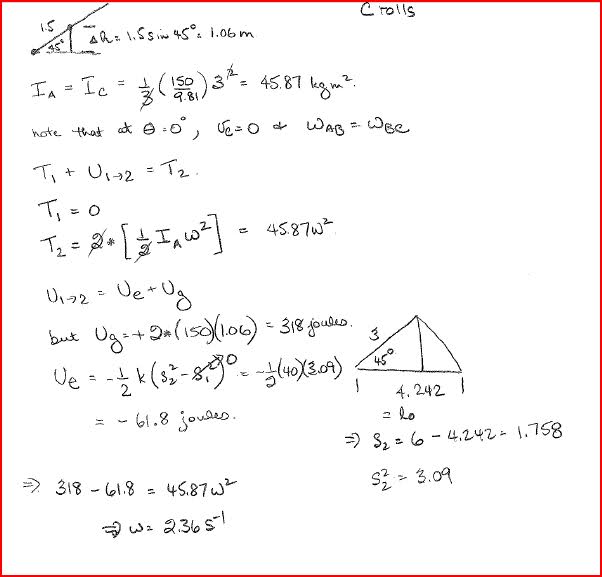 C rolls
1.5
45°
Δh = 1.5 sin 45° = 1.06 m
I_A = I_C = 1/3 (150/9.81) 3² = 45.87 kg m².
note that at θ = 0°, v_C = 0 & ω_AB = ω_BC
T₁ + U₁→₂ = T₂.
T₁ = 0
T₂ = 2 * [1/2 I_A ω²] = 45.87ω².
U₁→₂ = U_e + U_g
but U_g = + 2*(150)(1.06) = 318 joules.
U_e = -1/2 k (s₂² - s₁²→0) = -1/2 (40)(3.09)
= -61.8 joules.
3
45°
4.242
= l₀
⇒ s₂ = 6 - 4.242 = 1.758
s₂² = 3.09
⇒ 318 - 61.8 = 45.87ω²
⇒ ω = 2.36 s⁻¹